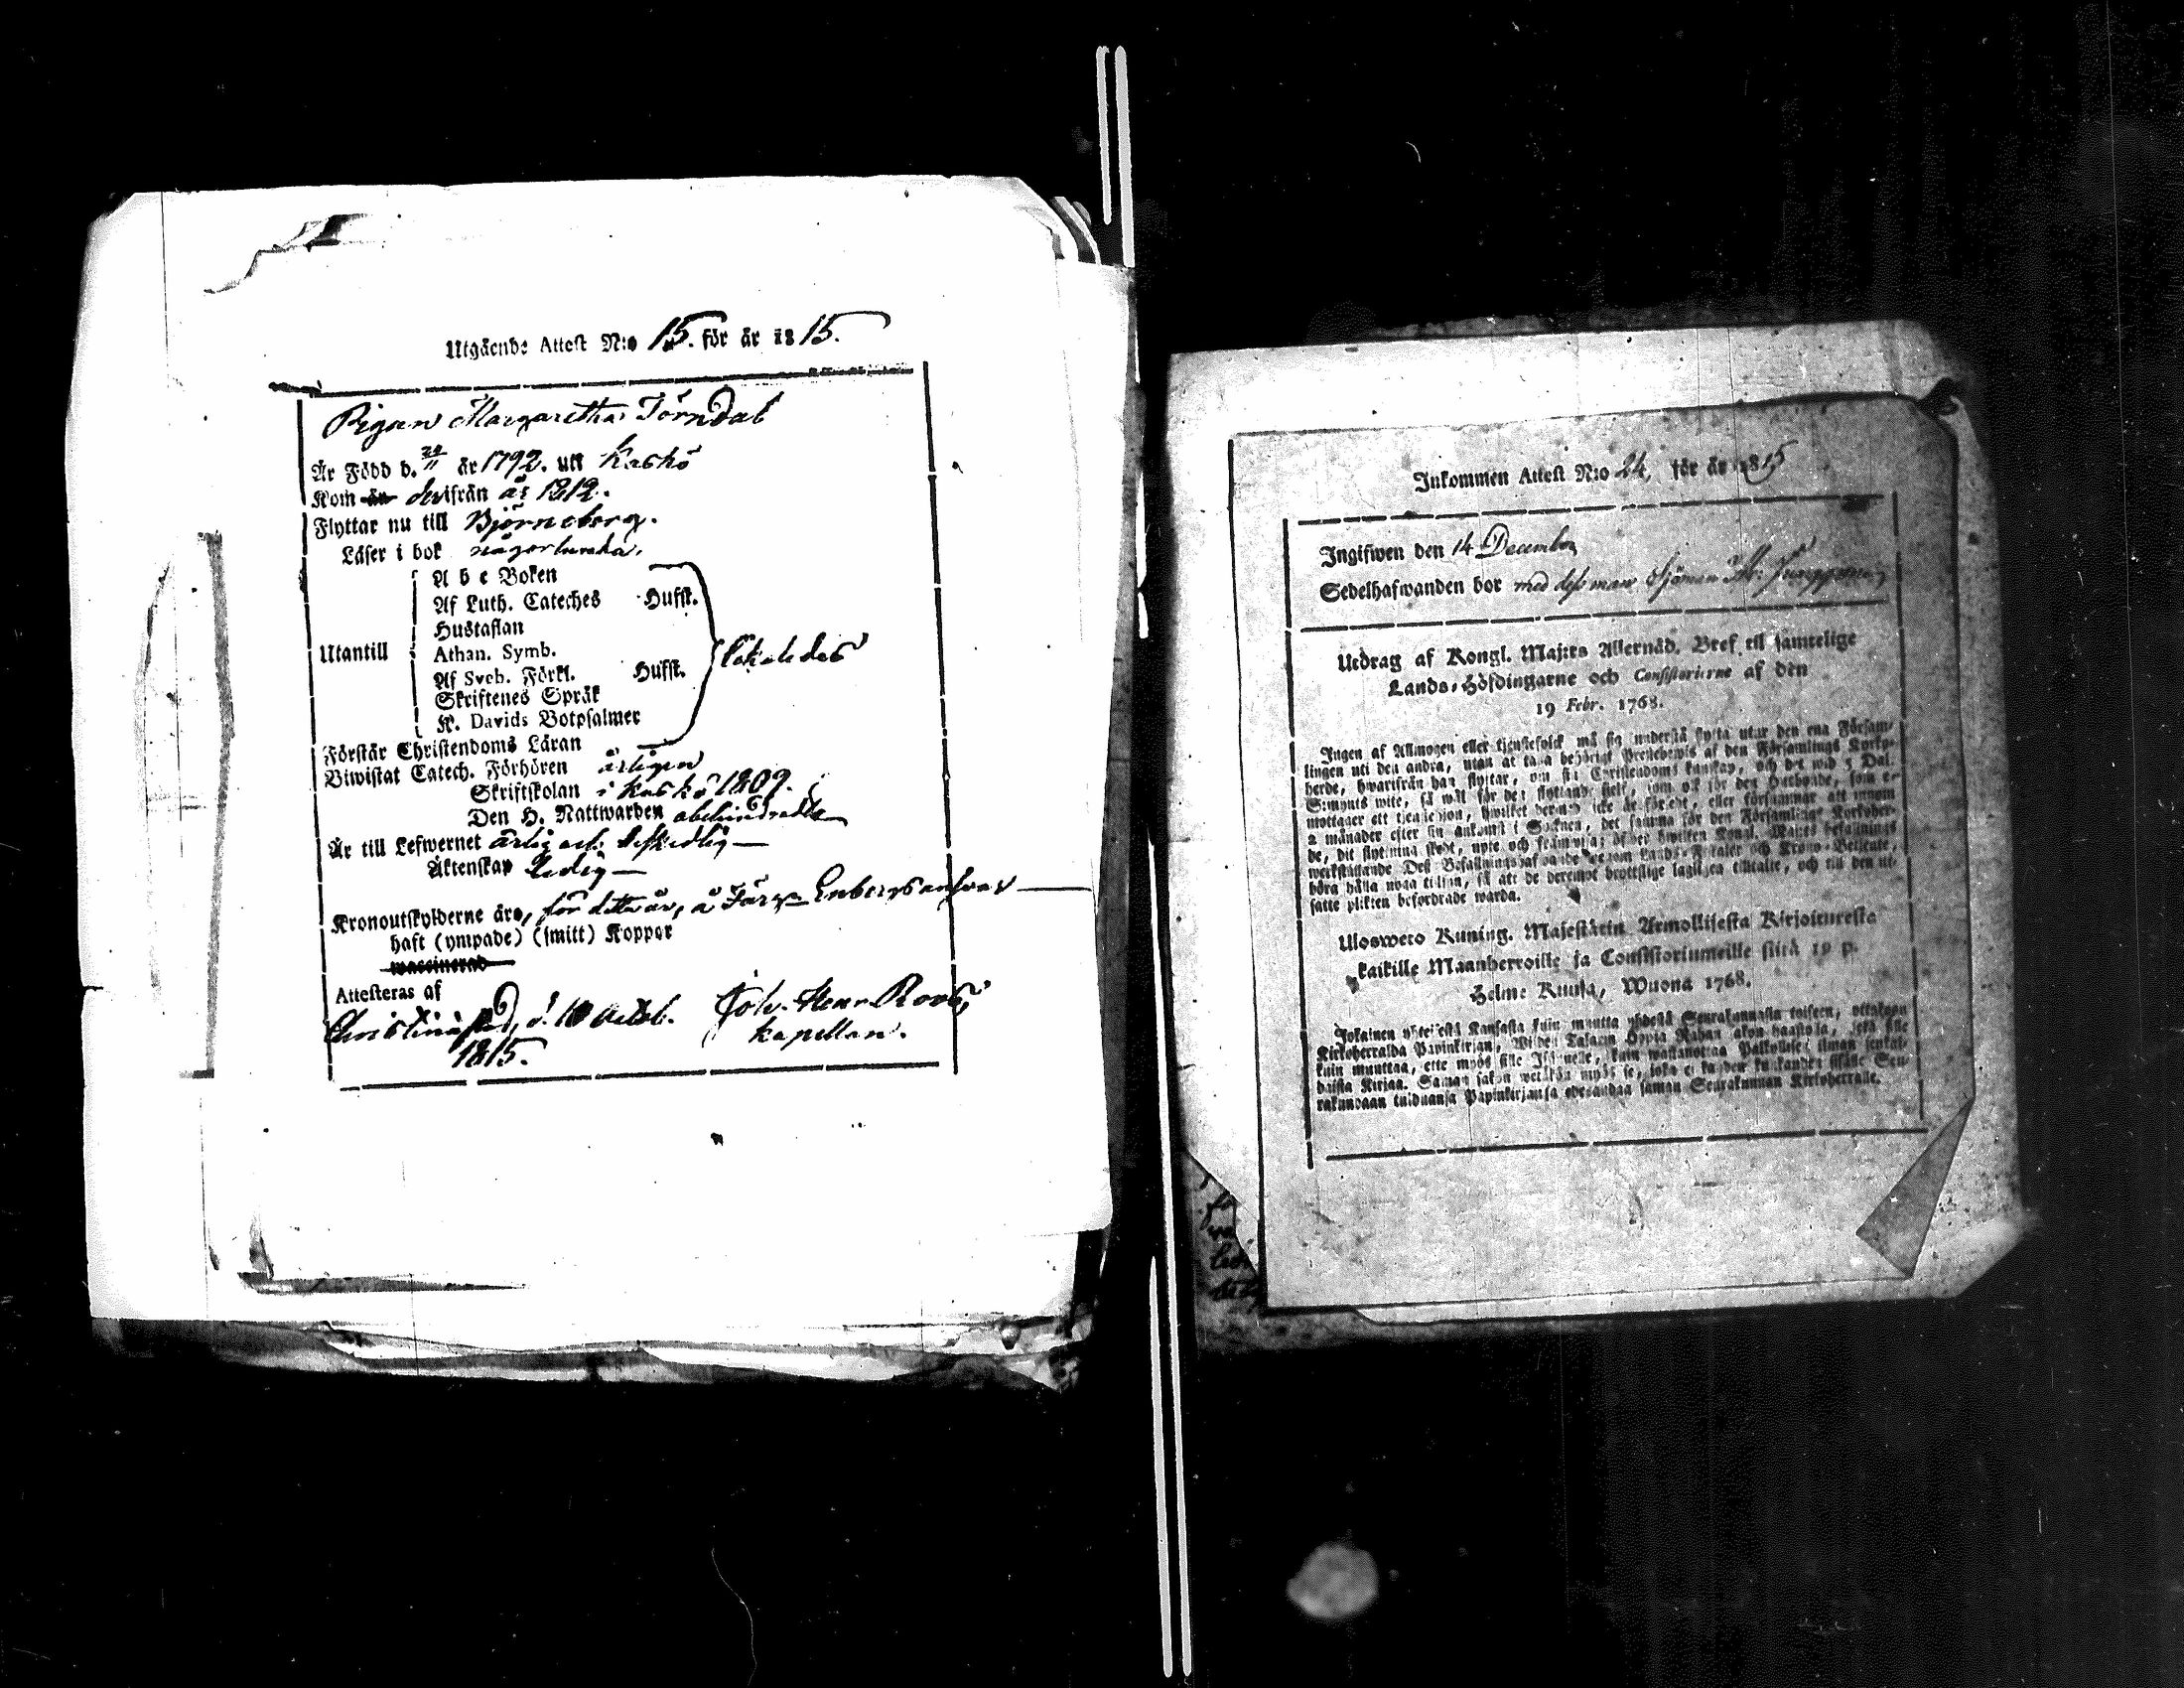 Utgående Attest N:o 15. för år 1815.
Pigan Margaretha Törndal
Är Född d. 24/11 år 1792. uti Kaskö
Kom än derifrån år 1812.
Flyttar nu till Björneborg.
Läser i bok någorlunda.
A b c Boken
Af Luth. Cateches Hufst.
Hustaflan
Utantill Athan. Symb. likaledes
Af Sveb. Förkl. Hufst.
Skriftenes Språk
K. Davids Botpsalmer
Förstår Christendoms Läran
Biwistat Catech. Förhören årligen
Skriftskolan i Kaskö 1809.
Den H. Nattwarden obehindradt
Är till Lefwernet ärlig och beskedlig
Äktenskap ledig
Kronoutskylderne äro, för detta år, å Enbergs ansvar
haft (ympade) (smitt) Koppor
waccinerad
Attesteras af
Christinæstad, d. 10 Octob. Joh. Henr. Roos
1815. kapellan.
Inkommen Attest N:o 24, för år 1815
Ingifwen den 14 December
Sedelhafwanden bor med dess man Sjöman
Utdrag af Kongl. Maj:ts Allernåd. Bref till samtelige
Lands-Höfdingarne och Consistorierne af den
19 Febr. 1768.
Ingen af Allmogen eller tjenstefolck må sig understå flytta utur den ena Försam-
lingen uti den andra, utan at taga behörigt Prestebewis af den Församlings Kyrko-
herde, hwarifrån han flyttar, om sin Christendoms kunskap, och det wid 5 Dal.
S:mynts wite, så wäl för den flyttande sielf, som ock för den Husbonde, som e-
mottager ett tjenstehjon, hwilket dermed icke är försedt, eller försummar att innom
2 månader efter sin ankomst i Socknen, det samma för den Församlings Kyrkoher-
de, dit flyttning skedt, upte och frambringa; öfwer hwilken Kongl. Maj:ts befallnings
werkställande Dess Befallningshafwande genom Lands-Fiskaler och Krono-Betjente,
böra hålla noga tillsyn, så att de deremot brottslige lagligen tilltalte, och till den ut-
satte plikten befordrade warda.
Uloswelo Kuning. Majestätin Armollisesta Kirjoituresta
kaikille Maanherroille ja Consistoriumeille siitä 19 p.
Helme Kuusa, Wuona 1768.
Jokainen yhteisestä Kansasta kuin muutta yhdestä Seurakunnasta toiseen, ottakaan
Kirkoherralda Papinkirjan, Wiiden Talarin Hopia Rahan sakon haastolla, sekä sille
kuin muuttaa, ette myös sille Isännelle, kuin wastanottaa Palkollisen ilman senkal-
daista Kirjaa. Saman sakon wetäkön myös se, joka ei kahden kuukauden sisälle Seu-
rakundaan tulduansa Papinkirjaansa edesandaa saman Seurakunnan Kirkoherralle.